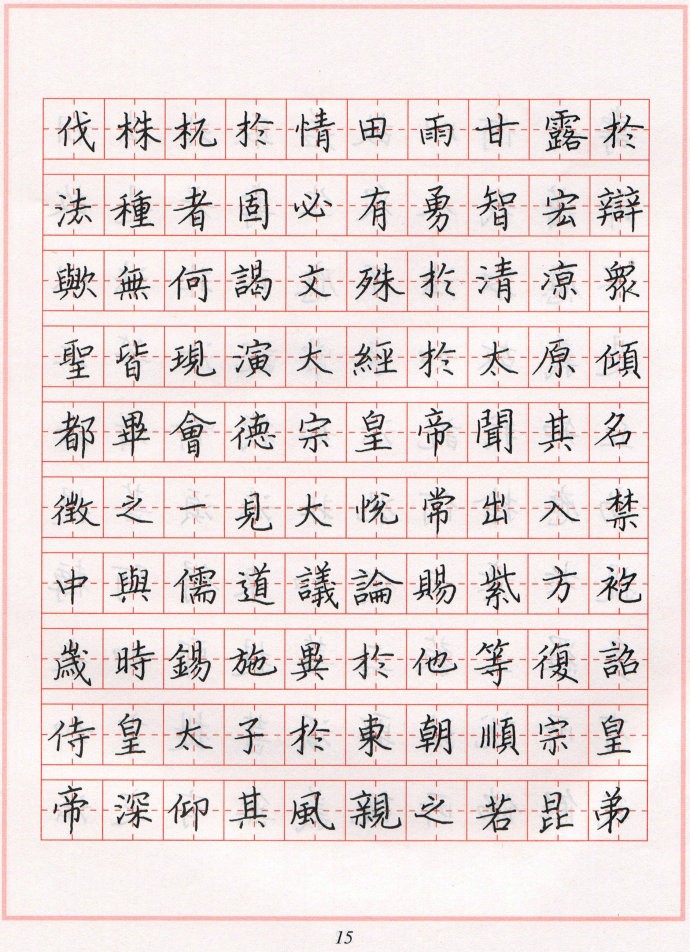 伐株杌於情田雨甘露於
法種者固必有勇智宏辯
歟無何謁文殊於清凉眾
聖皆現演大經於太原傾
都畢會德宗皇帝聞其名
徵之一見大悅常出入禁
中與儒道議論賜紫方袍
歲時錫施異於他等復詔
侍皇太子於東朝順宗皇
帝深仰其風親之若昆弟
15